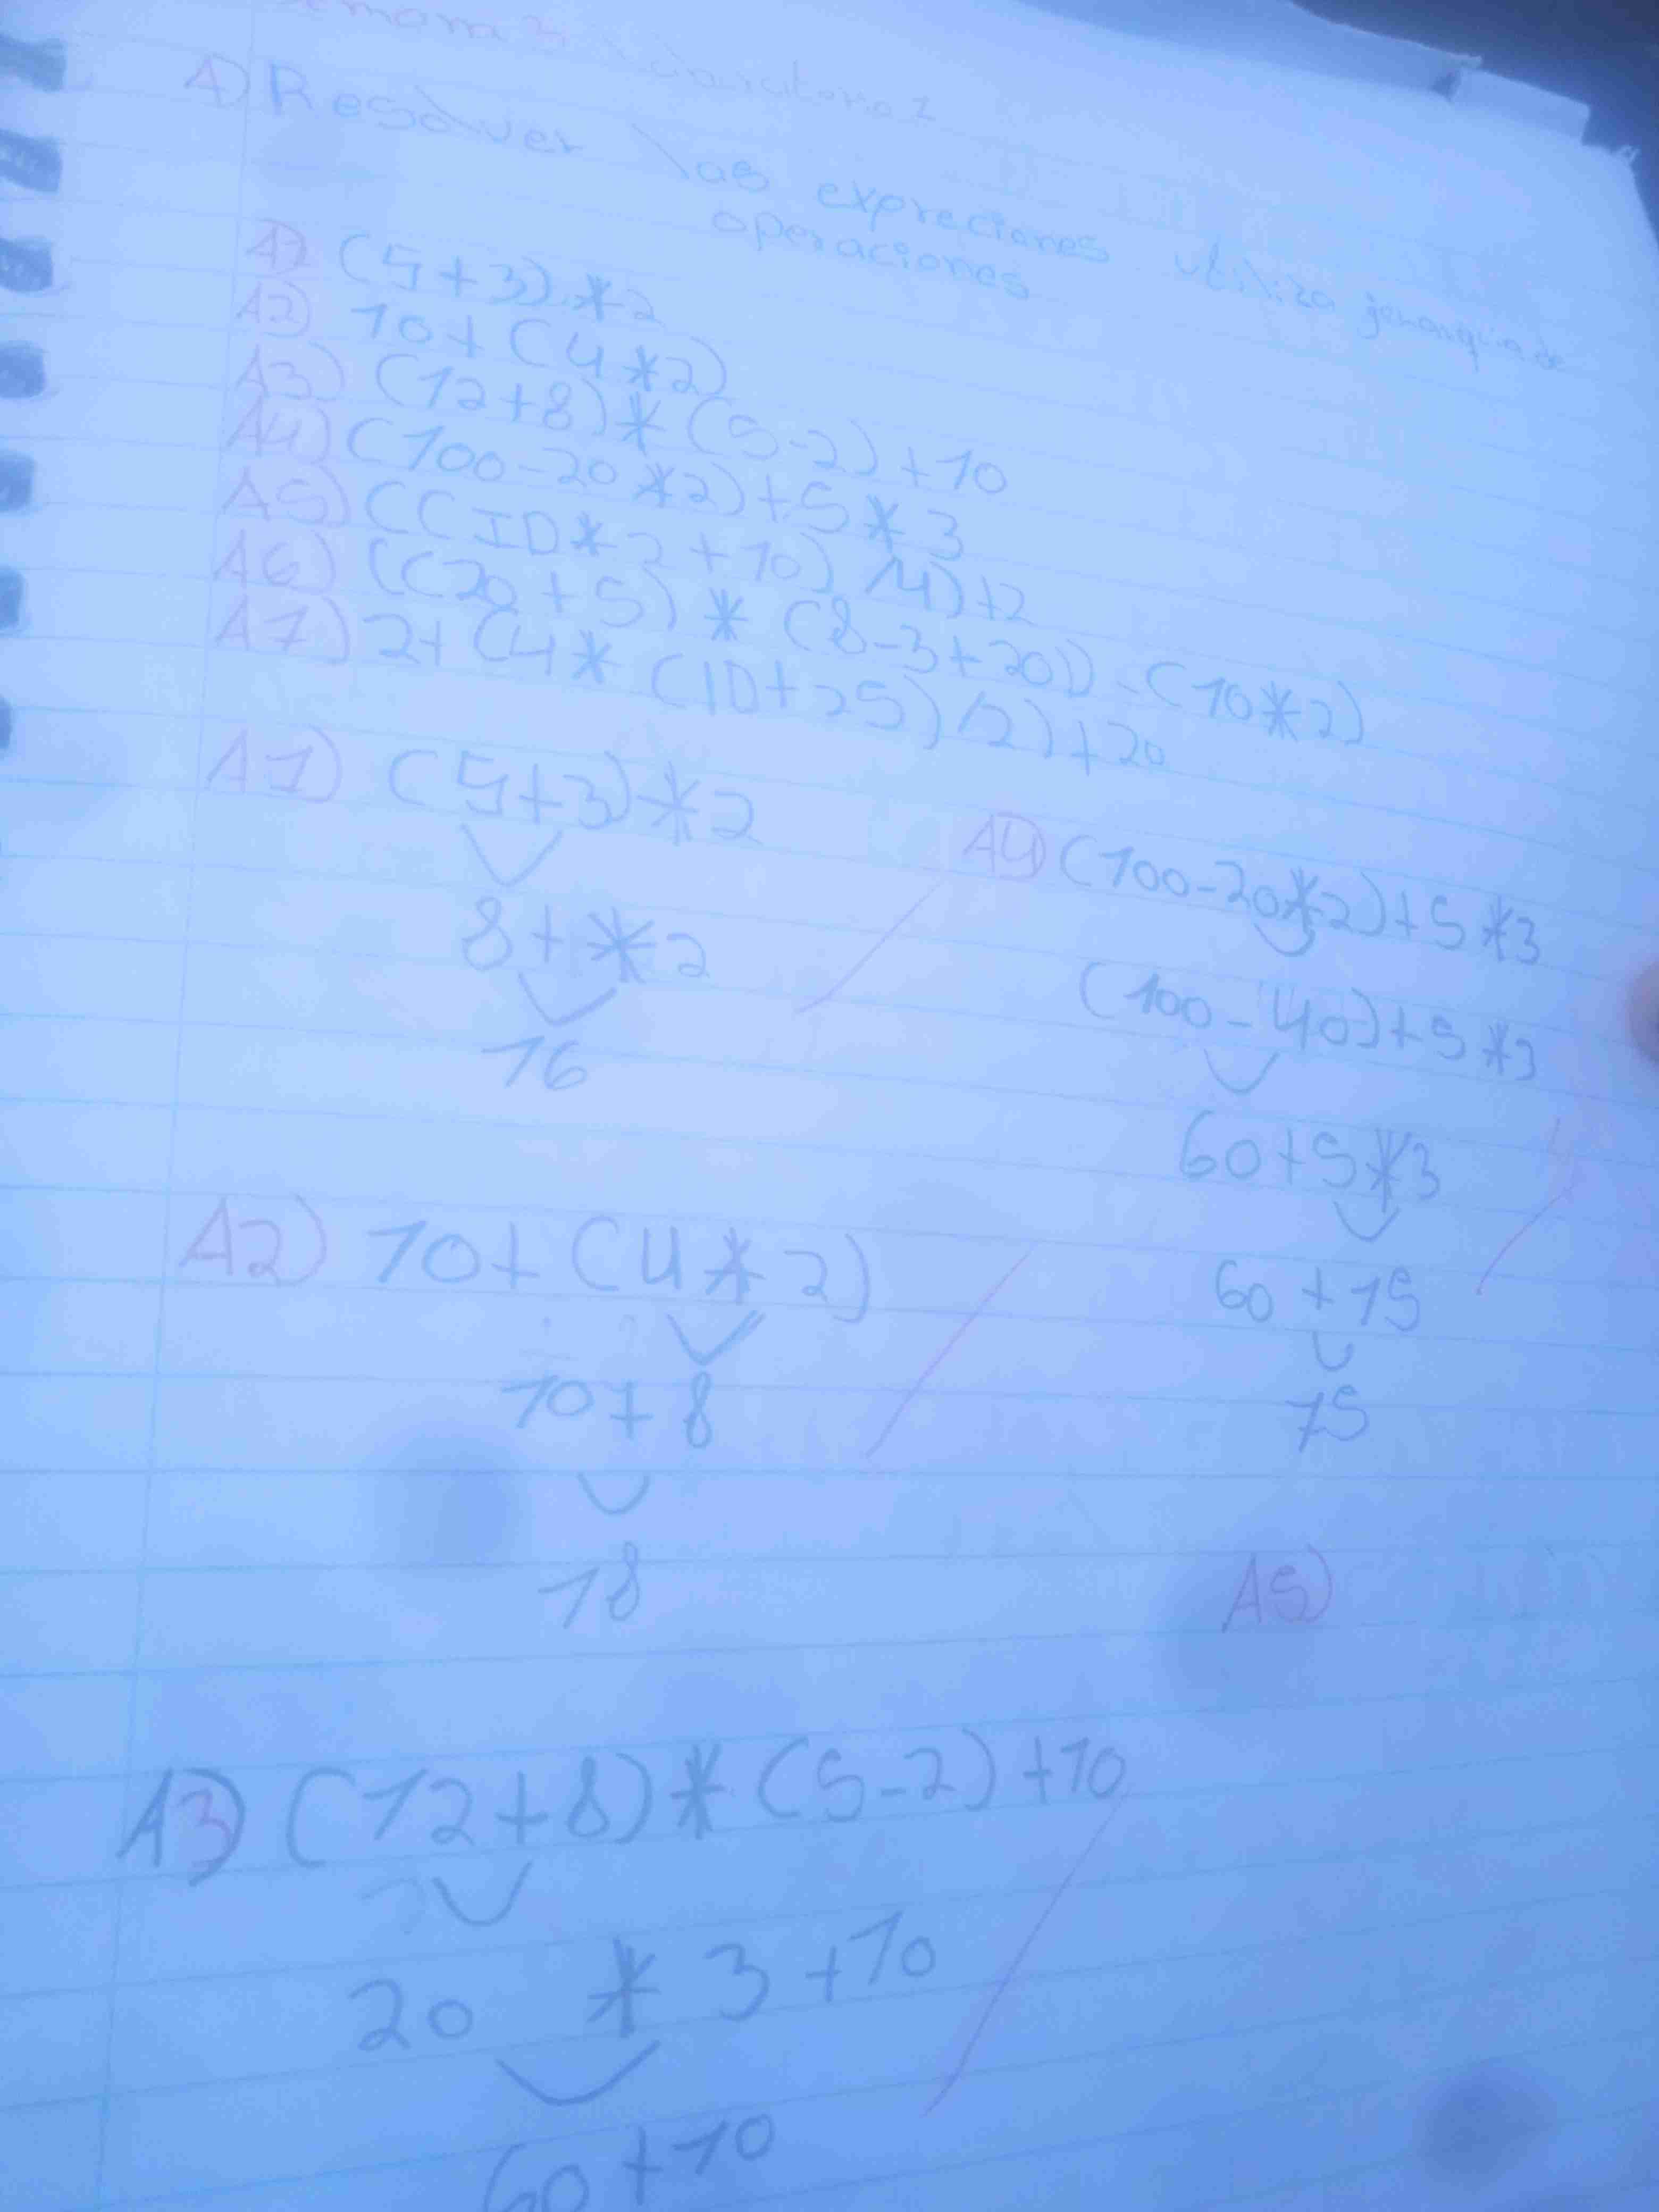 A) Resolver las expreciones utiliza
operaciones
A1) (5+3)*2
A2) 10+(4*2)
A3) (12+8)*(5-2)+10
A4) (100-20*2)+5*3
A5) ((ID*2+10)/4)+2
A6) ((20+5)*(8-3+20))-(10*2)
A7) 2+(4*(ID+25)/2)+20
A1) (5+3)*2
8+*2
16
A2) 10+(4*2)
10+8
18
A3) (12+8)*(5-2)+10
20 * 3+10
60+10
A4) (100-20*2)+5*3
(100-40)+5*3
60+5*3
60+15
75
A5)